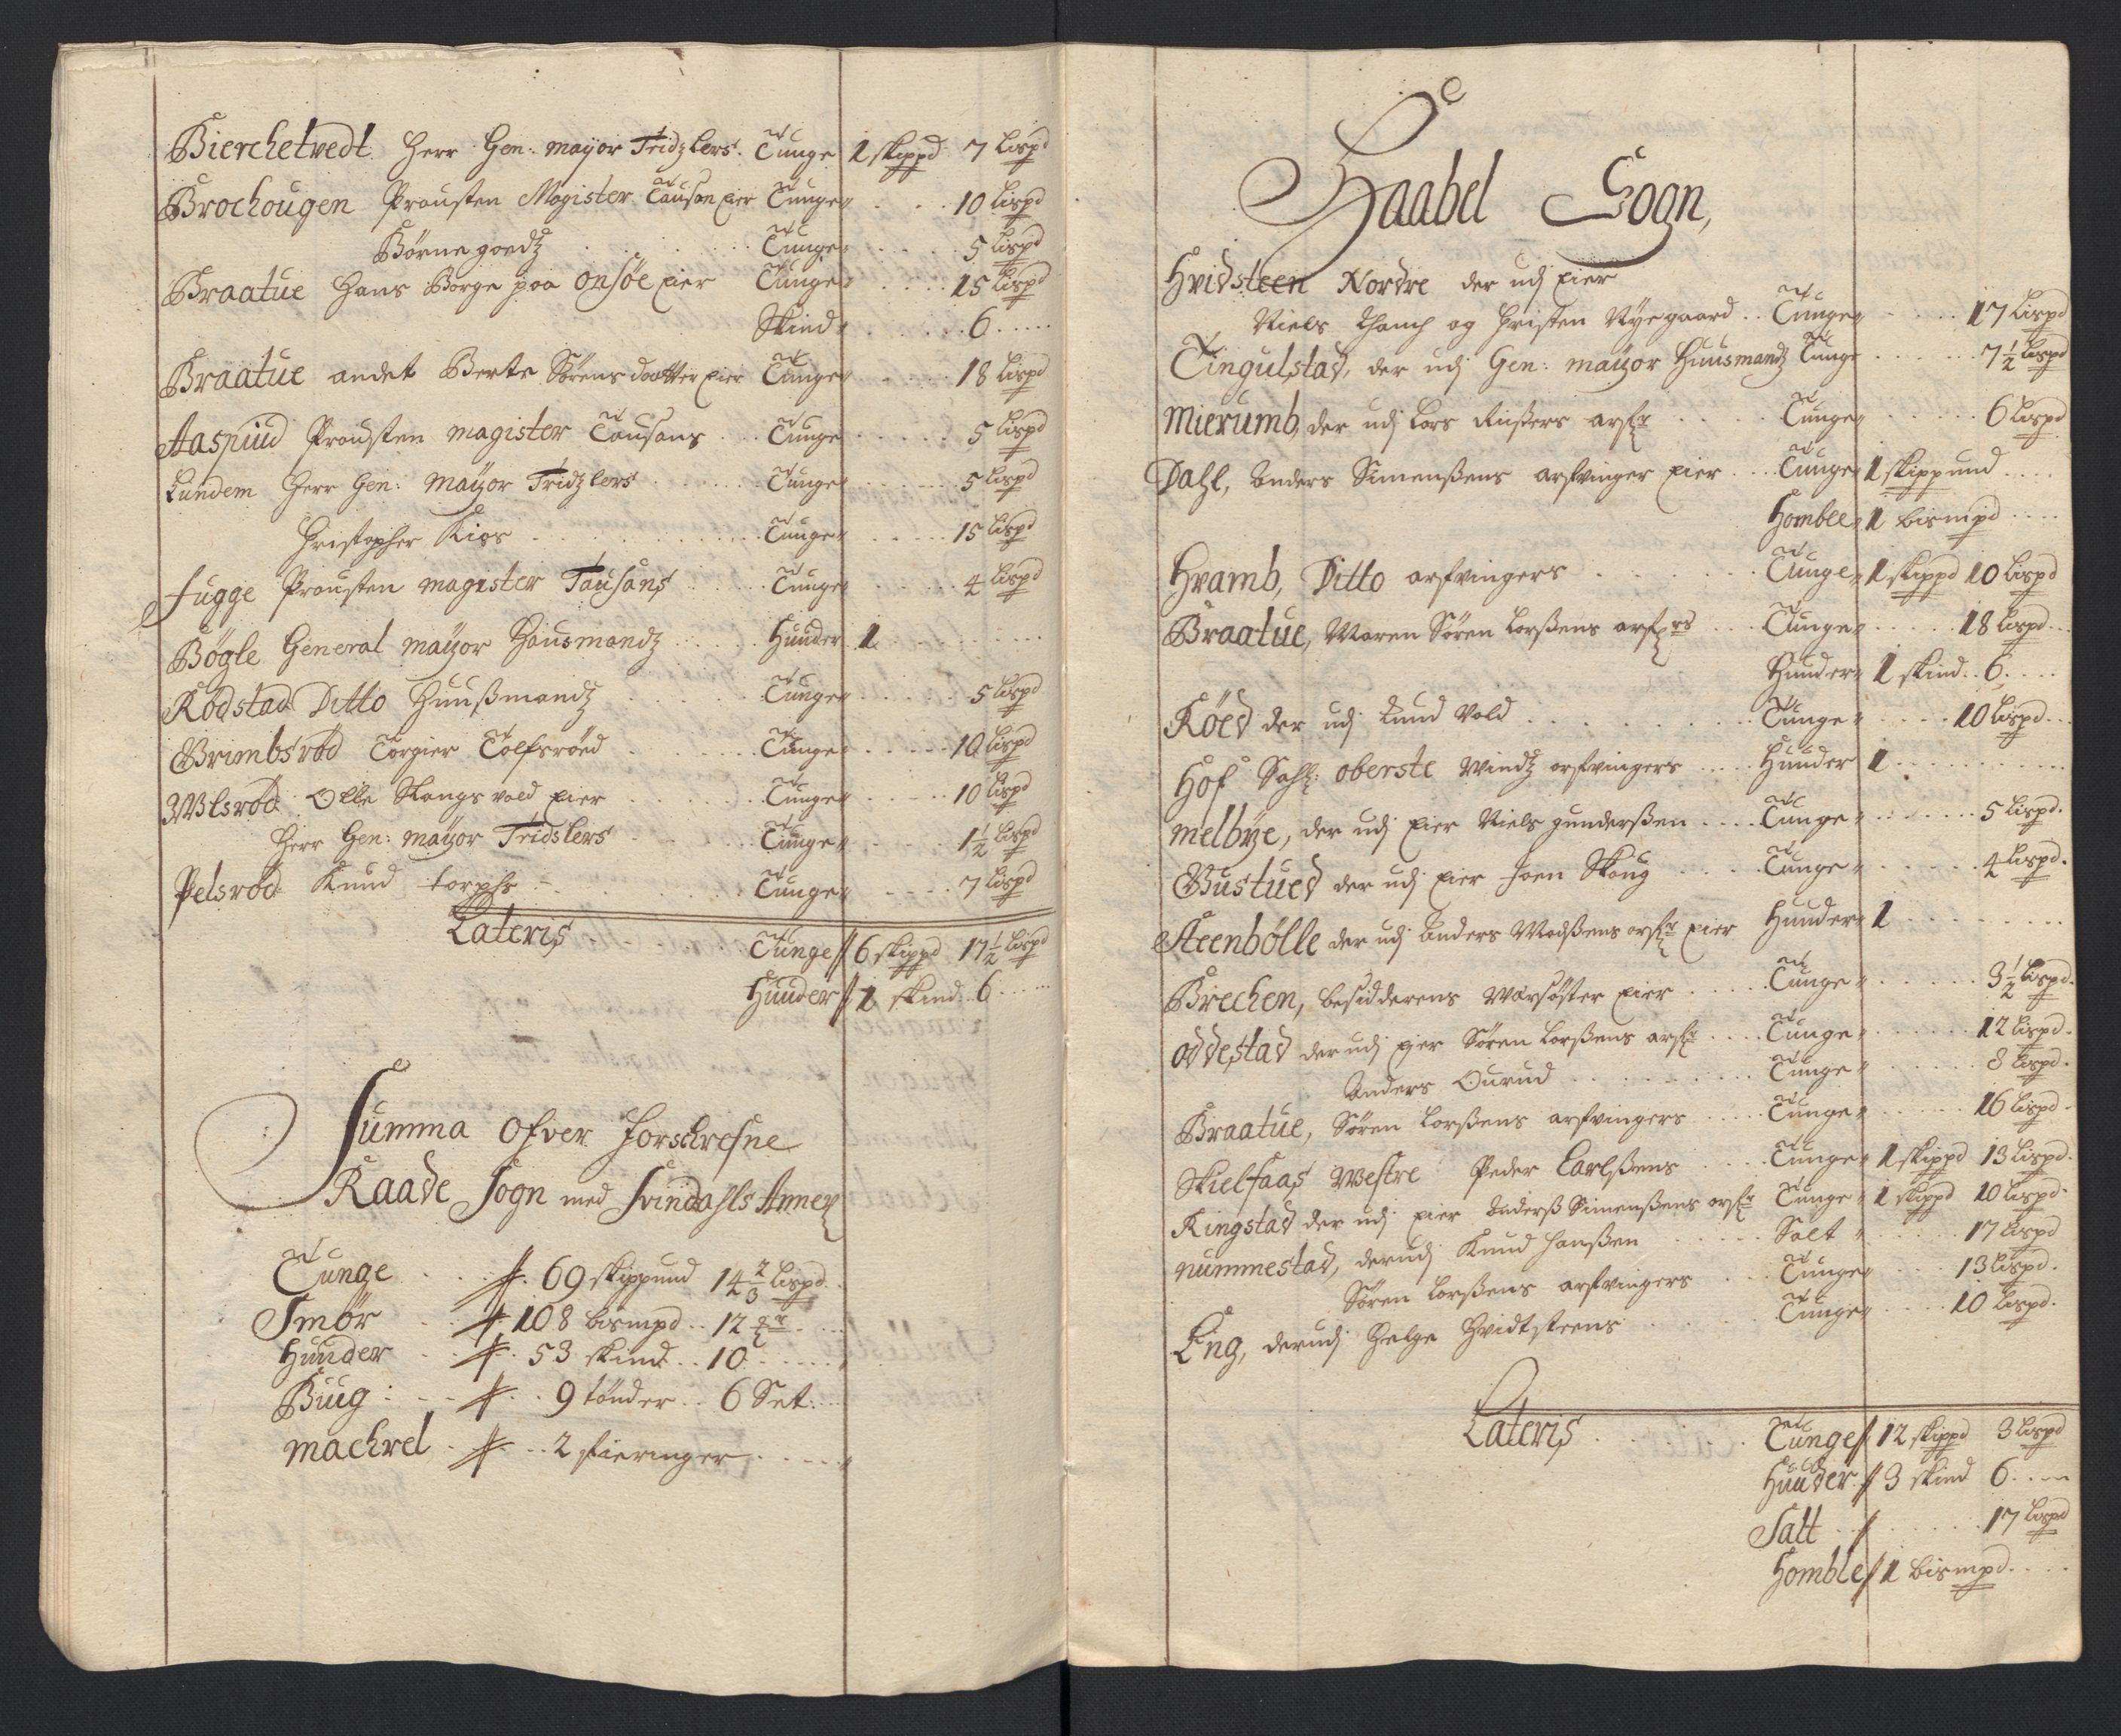 Bierchetvedt Herr Gen: mayor Tridzlers. Tunge 1 skippd 7 Lispd
Brochougen Prousten Magister Tauson eier Tunge 10 Lispd
Børnegoedtz Tunge 5 Lispd
Braatue Hans Borge paa Onsøe eier Tunge 15 Lispd
Skind 6
Braatue andet Berte Sørensdaatter eier Tunge 18 Lispd
Aaspiud Prousten magister Tausans Tunge 5 Lispd
Lundem Herr Gen: Mayor Tridzlers Tunge 5 Lispd
Christopher Kios Tunge 15 Lispd
Fugge Prousten magister Tausans Tunge 4 Lispd
Bøgle General mayor Hausmandz Huuder 1
Rødstad Ditto Huußmandz Tunge 5 Lispd
Grimbsrød Torgier Tolfsrøed Tunge 10 Lispd
Wlsrød Olle Skangsvold eier Tunge 10 Lispd
Herr Gen: mayor Tridslers Tunge 1½ Lispd
Pelsrød Knud torphs Tunge 7 Lispd
Lateris Tunge // 6 skippd 17½ Lispd
Huuder // 1 skind 6
Summa Ofver Forschrefne
Raade Sogn med Svindahls Annex
Tunge 69 skippund 14⅔ Lispd
Smør 108 bismpd 12 ℔r
Huuder 53 skind 10
Biug 9 tønder 6 Set:
machrel 2 fieringer
Haabel Sogn,
Hvidsteen Nordre der udj eier
Niels Chanch og Christen Nyegaard Tunge 17 Lispd
Tingulstad, der udj Gen: mayor Huusmandz Tunge 7½ Lispd
Mierumb, der udj Lars Rißers arfr Tunge 6 Lispd
Dahl, Anders Simenßens arfvinger eier Tunge 1 skippund
Homble 1 bismpd
Hvamb, Ditto arfvingers Tunge 1 skippd 10 Lispd
Braatue, Maren Søren Larßens arfrs Tunge 18 Lispd
Huuder 1 skind 6
Røed der udj Lund Vold Tunge 10 Lispd
Hof Sahl: oberste Windz arfvingers Huuder 1
Melbye, der udj Eier Niels gunderßen Tunge 5 Lispd.
Bustued der udj Eier Joen Skoug Tunge 4 Lispd.
Steenbølle der udj Anders Madßens arfr eier Huuder 1
Brechen, besidderens Warsøster eier Tunge 3½ Lispd.
Oddestad der udj eier Søren Larßens arfr Tunge 12 Lispd.
Anders Ourud Tunge 8 Lispd.
Braatue, Søren Larßens arfvingers Tunge 16 Lispd
Skielfaas Westre Peder Carlßens Tunge 1 skippd 13 Lispd.
Ringstad der udj eier Anderß Simenßens arfr Tunge 1 skippd 10 Lispd.
nummestad, derudj Knud Hanßen Salt 17 Lispd
Søren Larßens arfvingers Tunge 13 Lispd.
Eng, derudj Helge Hvidtsteens Tunge 10 Lispd.
Lateris Tunge // 12 skippd 3 Lispd
Huuder // 3 skind 6
Salt // 17 Lispd
Homble // 1 bismpd.